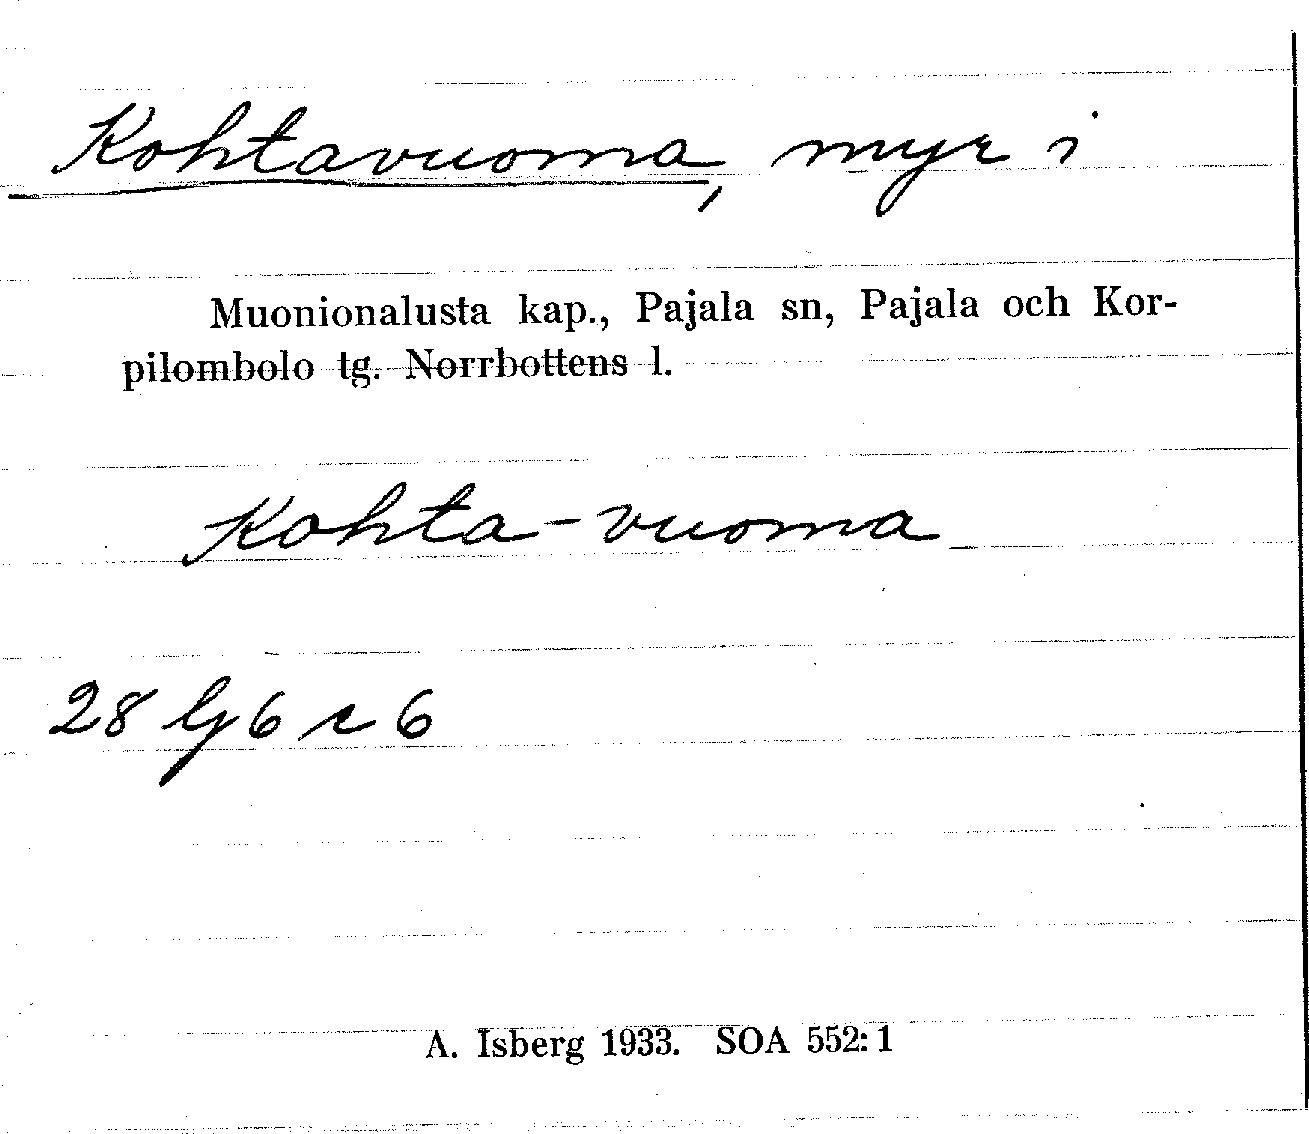 Kohtavuoma, myr i
Muonionalusta kap., Pajala sn, Pajala och Kor-
pilombolo tg. Norrbottens l.
Kohta-vuoma
28 G 6 r 6
A. Isberg 1933. SOA 552:1